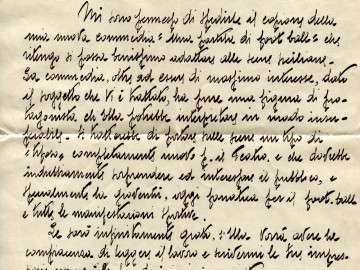 Mi sono permesso di spedirle il copione della
mia nuova commedia "Una partita di foot-ball" che
ritengo si possa benissimo adattare alle scene siciliane.
La commedia, oltre ad essere di massimo interesse, dato
il soggetto che vi è trattato, ha pure una figura di pro-
tagonista che Ella potrebbe interpretare in modo insu-
perabile. Si tratterebbe di portare sulle scene un tipo di
"tifoso" completamente nuovo p. il Teatro, e che dovrebbe
indubbiamente sorprendere ed interessare il pubblico, e
specialmente la gioventù, oggi fanatica per il foot-ball
e tutte le manifestazioni sportive.
Le sarò infinitamente grato, s'Ella vorrà avere la
compiacenza di leggere il lavoro e scrivermi le Sue impres-